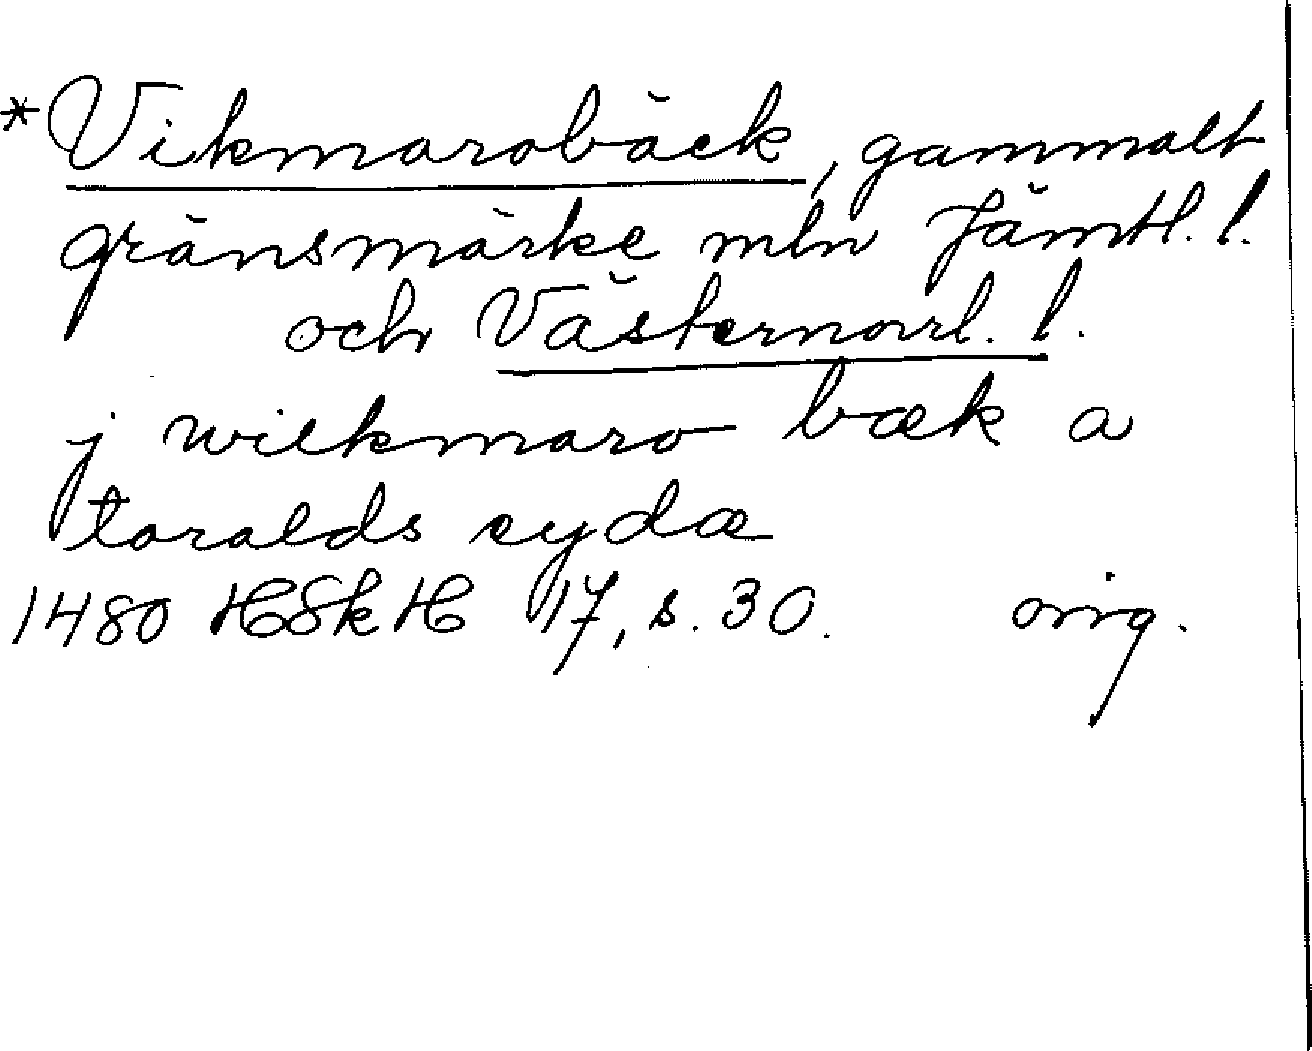 *Vikmarobäck, gammalt
gränsmärke mln Jämtl. l.
och Västernorrl. l.
j wilkmaro bæk a
toralds eydæ
1480 HSkH 17, s. 30. orig.